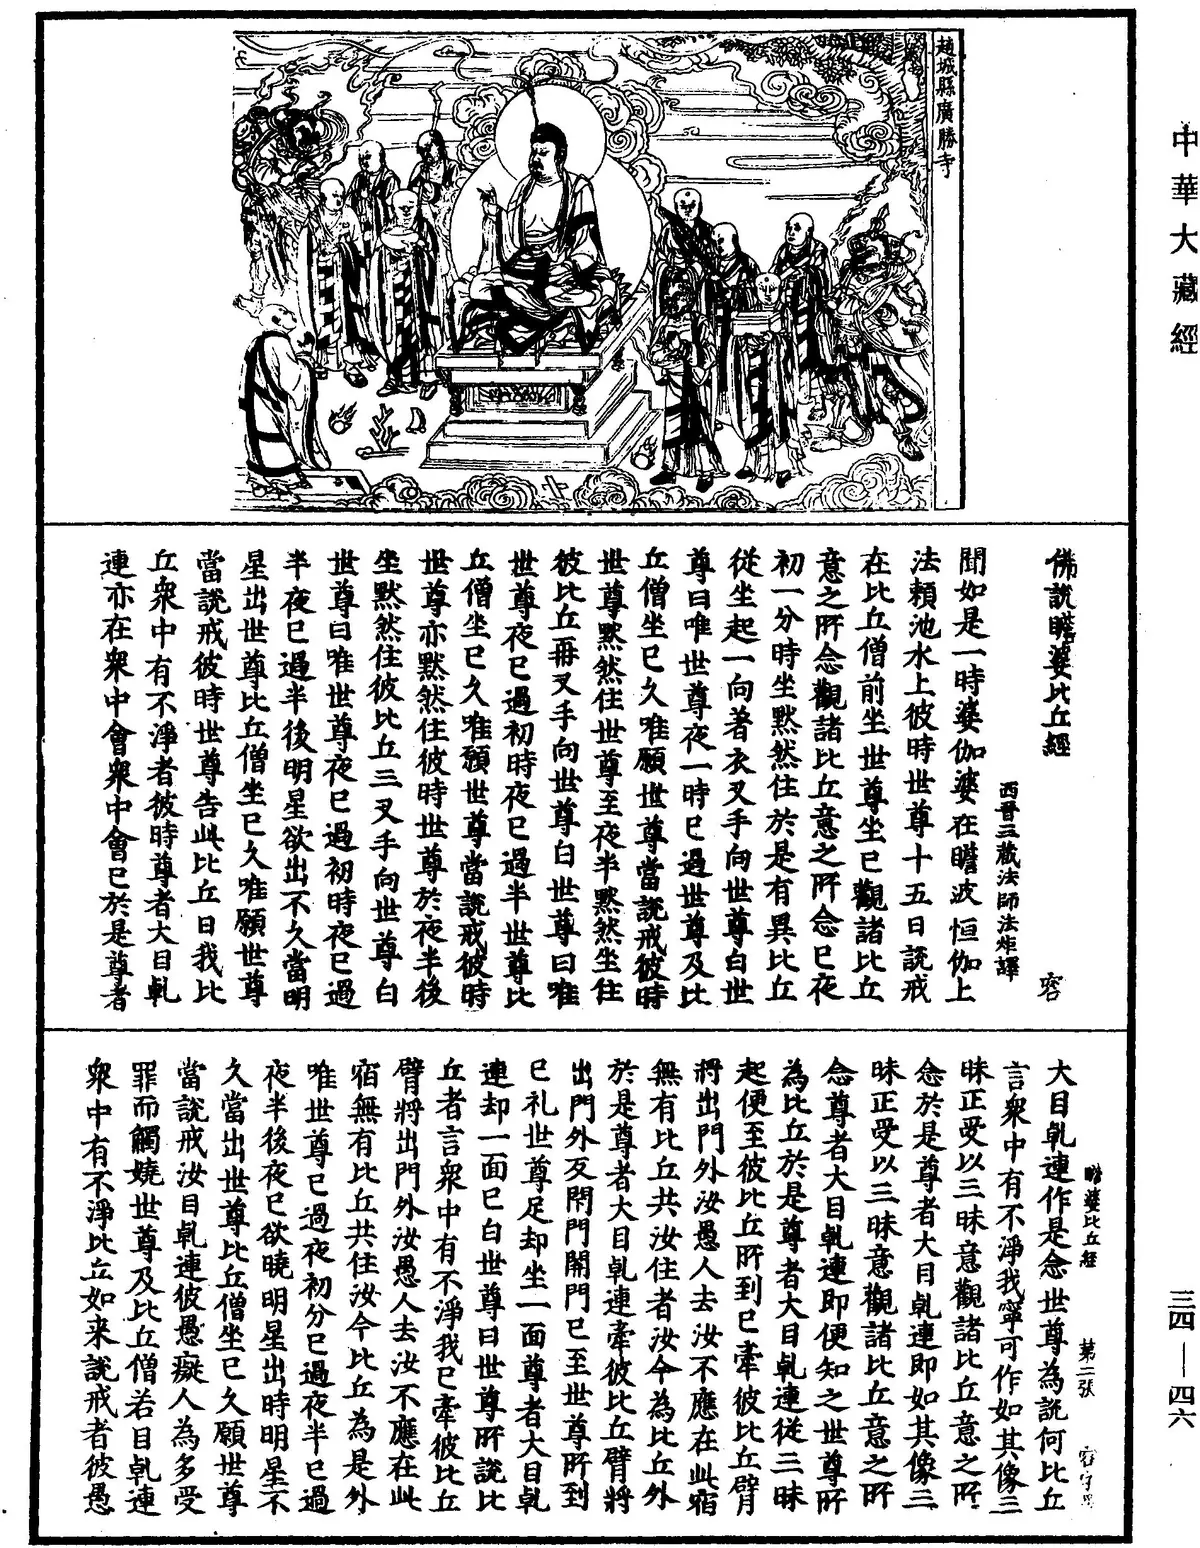 中華大藏經
趙城縣廣勝寺
佛說瞻婆比丘經
西晉三藏法師法炬譯
容
聞如是一時婆伽婆在瞻波恒伽上
法賴池水上彼時世尊十五日說戒
在比丘僧前坐世尊坐已觀諸比丘
意之所念觀諸比丘意之所念已夜
初一分時坐默然住於是有異比丘
從坐起一向著衣叉手向世尊白世
尊曰唯世尊夜一時已過世尊及比
丘僧坐已久唯願世尊當說戒彼時
世尊默然住世尊至夜半默然坐住
彼比丘再叉手向世尊白世尊曰唯
世尊夜已過初時夜已過半世尊比
丘僧坐已久唯願世尊當說戒彼時
世尊亦默然住彼時世尊於夜半後
坐默然住彼比丘三叉手向世尊白
世尊曰唯世尊夜已過初時夜已過
半夜已過半後明星欲出不久當明
星出世尊比丘僧坐已久唯願世尊
當說戒彼時世尊告此比丘曰我比
丘衆中有不淨者彼時尊者大目乹
連亦在衆中會衆中會已於是尊者
瞻婆比丘經 第二張
大目乹連作是念世尊為說何比丘
言衆中有不淨我寧可作如其像三
昧正受以三昧意觀諸比丘意之所
念於是尊者大目乹連即如其像三
昧正受以三昧意觀諸比丘意之所
念尊者大目乹連即便知之世尊所
為比丘於是尊者大目乹連從三昧
起便至彼比丘所到已牽彼比丘臂
將出門外汝愚人去汝不應在此宿
無有比丘共汝住者汝今為比丘外
於是尊者大目乹連牽彼比丘臂將
出門外反閇門開門已至世尊所到
已礼世尊足却坐一面尊者大目乹
連却一面已白世尊曰世尊所說比
丘者言衆中有不淨我已牽彼比丘
臂將出門外汝愚人去汝不應在此
宿無有比丘共住汝今比丘為是外
唯世尊已過夜初分已過夜半已過
夜半後夜已欲曉明星出時明星不
久當出世尊比丘僧坐已久願世尊
當說戒汝目乹連彼愚癡人為多受
罪而觸嬈世尊及比丘僧若目乹連
衆中有不淨比丘如来說戒者彼愚
三四—四六